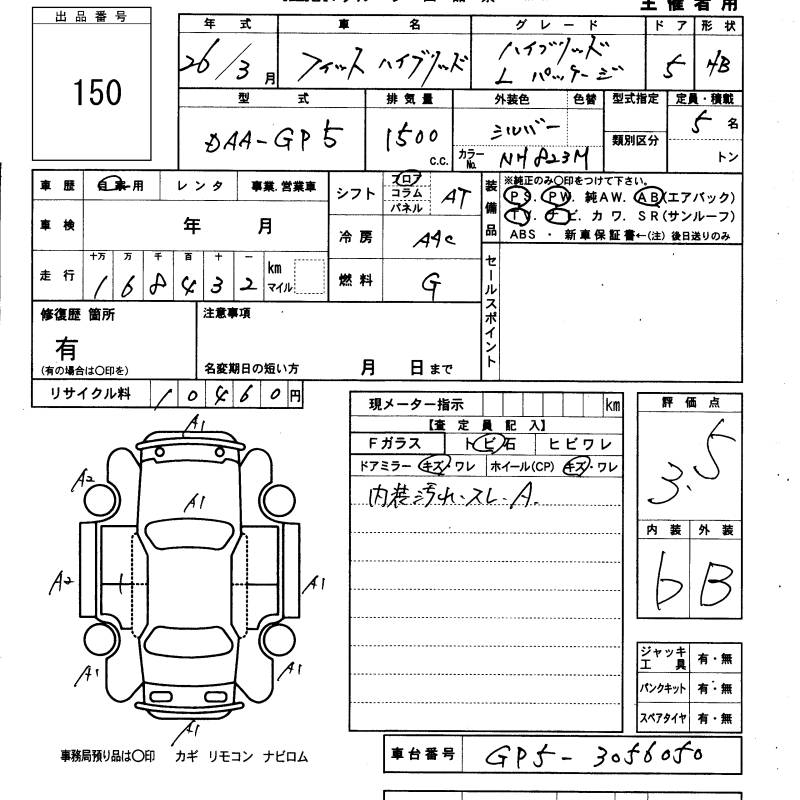 主催者用
出品番号
150
年式 車名 グレード ドア 形状
26/3月 フィット ハイブリッド ハイブリッド Lパッケージ 5 HB
型式 排気量 外装色 色替 型式指定 定員・積載
DAA-GP5 1500 c.c. シルバー 類別区分 5名
カラーNo. NH823M トン
車歴 自家用 レンタ 事業.営業車
シフト フロア コラム パネル AT
装備品 ※純正のみ○印をつけて下さい。
PS. PW. 純AW. AB(エアバック)
TV. ナビ. カワ. SR(サンルーフ)
ABS ・ 新車保証書←(注) 後日送りのみ
車検 年 月
冷房 AAC
走行 十万 万 千 百 十 一 km マイル
1 6 8 4 3 2
燃料 G
セールスポイント
修復歴 箇所 注意事項
有
(有の場合は○印を) 名変期日の短い方 月 日まで
リサイクル料 10460円
現メーター指示 km
【査定員記入】
Fガラス トビ石 ヒビワレ
ドアミラー キズ・ワレ ホイール(CP) キズ・ワレ
内装汚れ.スレ.A.
評価点
3.5
内装 外装
b B
A1
A2 A1
A2 A1
A1 A1
A1
ジャッキ工具 有・無
パンクキット 有・無
スペアタイヤ 有・無
事務局預り品は○印 カギ リモコン ナビロム
車台番号 GP5-3056050